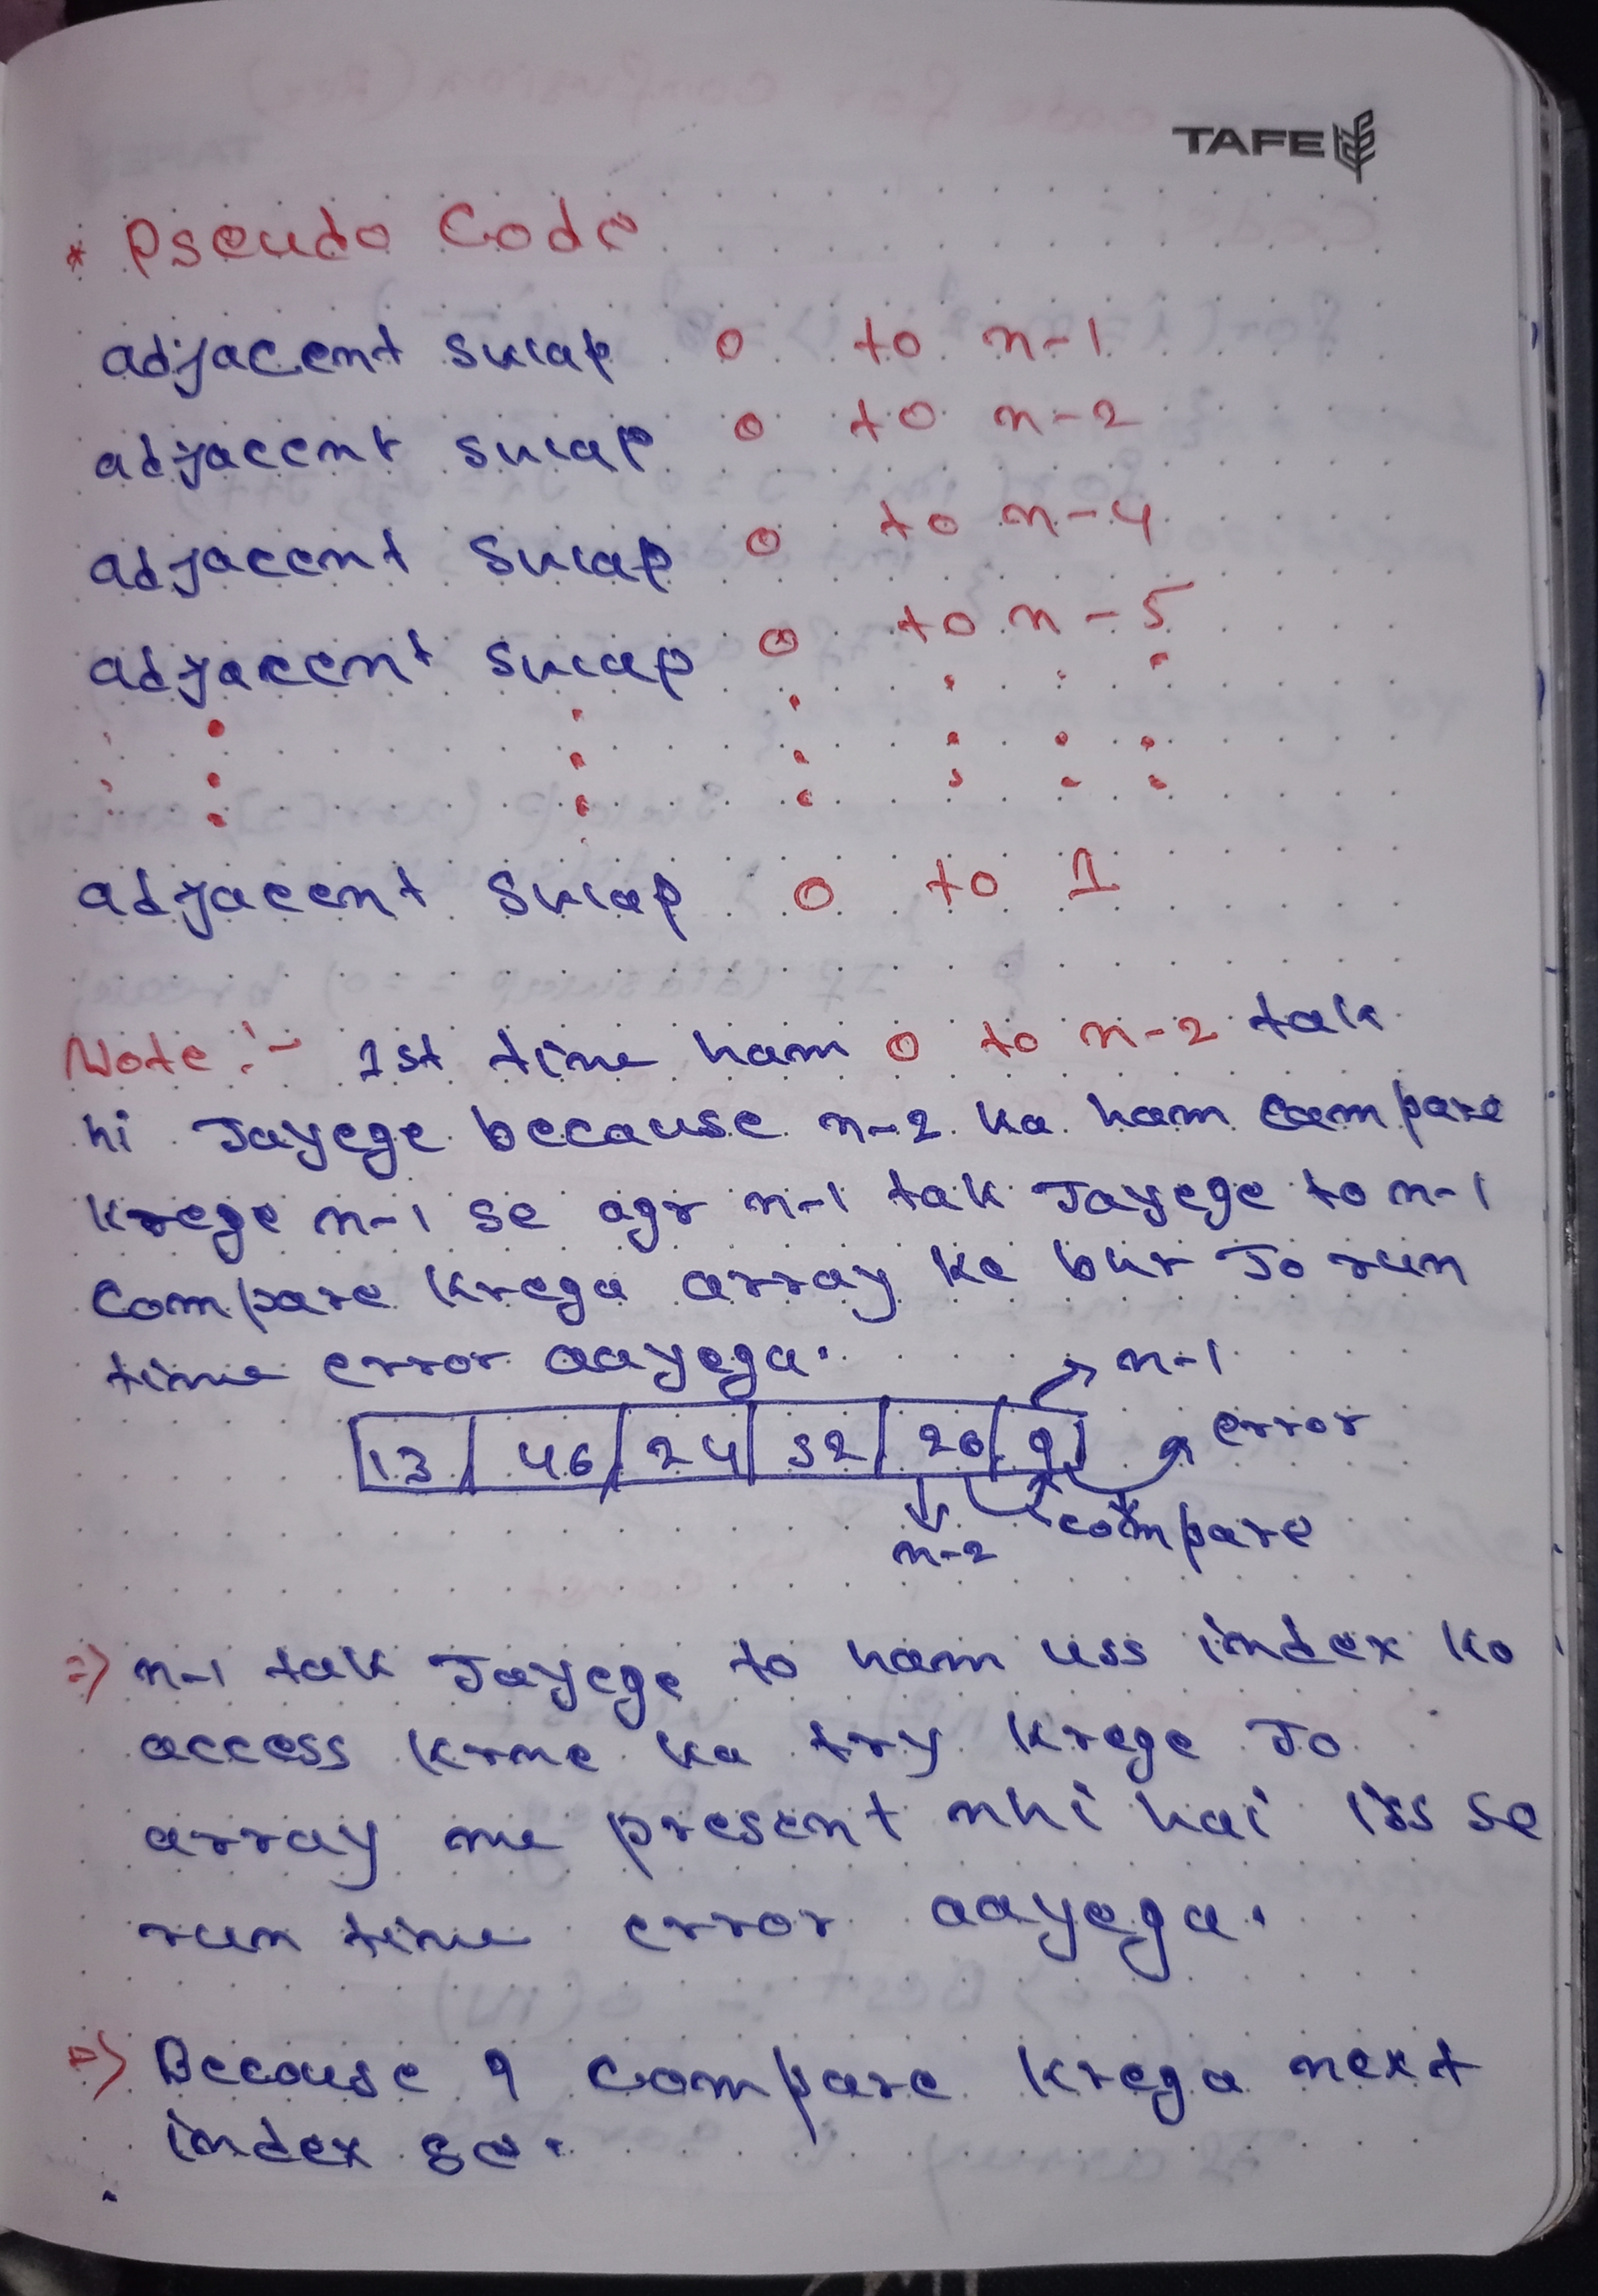 TAFE
* Pseudo Code
adjacent swap 0 to n-1
adjacent swap 0 to n-2
adjacent swap 0 to n-4
adjacent swap 0 to n-5
adjacent swap 0 to 1
Note :- 1st time ham 0 to n-2 tak
hi Jayege because n-2 ka ham compare
krege n-1 se agr n-1 tak Jayege to n-1
compare krega array ke bhr Jo run
time error aayega.
n-1
13 46 24 52 20 9 error
n-2 compare
=> n-1 tak Jayege to ham uss index ko
access krne ka try krege Jo
array me present nhi hai iss se
run time error aayega.
=> Because 9 compare krega next
index se.